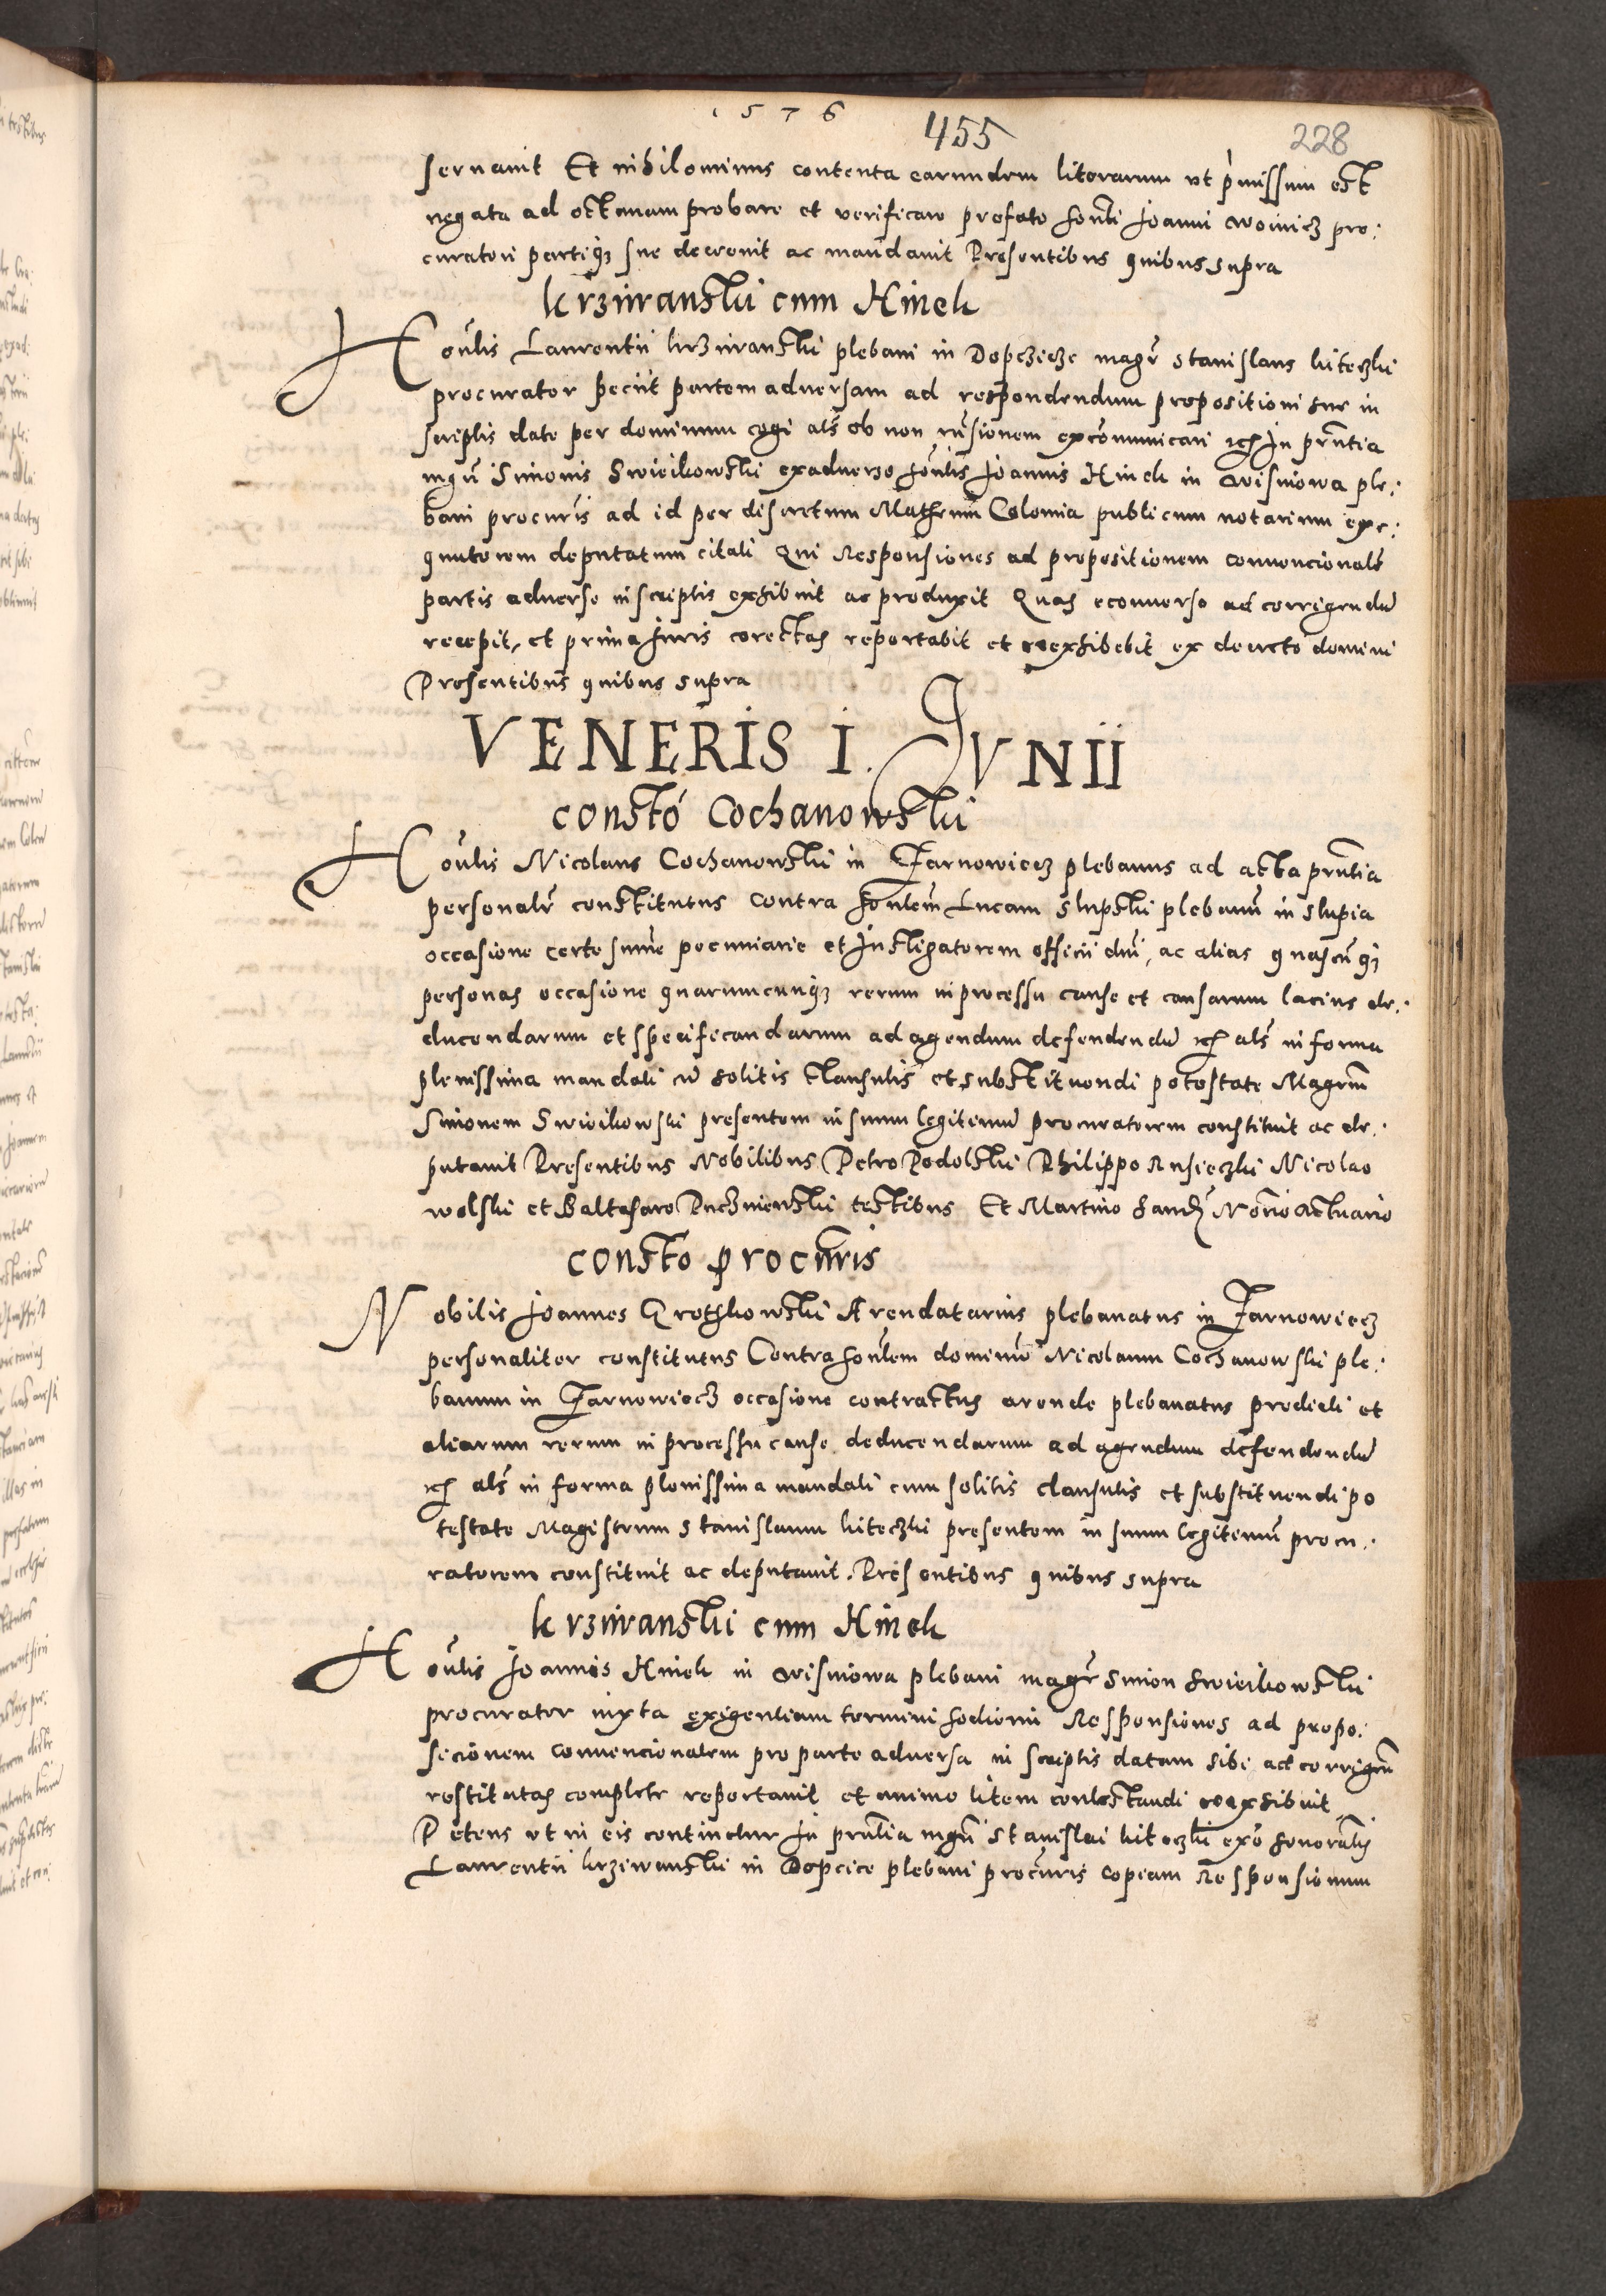 1576
455
228
servavit Et nihilominus contenta earundem literarum ut p̃missum est
negata ad octavam probare et verificare prefato hon̄li Joanni woinicz pro:
curatori partiq̃ sue decrevit ac mandavit Presentibus quibus supra
krziwanskii cum Hinek
Hon̄lis Laurentii krziwanskii plebani in Dopczicze magr̃ Stanislaus kiteczki
procurator peciit partem adversam ad respondendum propositioni sue in
scriptis date per dominum cogi als̃ ob non rñsionem excõmunicari etc In prñtia
mgri Simonis Swieikowskii exadverso hon̄lis Joannis Hinek in wisniowa ple:
bani procuris ad id per discretum Mathiam Colomia publicum notarium exe:
quutorem deputatum citati Qui Responsiones ad propositionem convencionalẽ
partis adverse in scriptis exhibuit ac produxit Quas econverso ad corrigendũ
recepit, et prima Juris corectas reportabit et reexhibebit ex decreto domini
Presentibus quibus supra
VENERIS I. JVNII
Constõ Cochanowskii
Hon̄lis Nicolaus Cochanowskii in Jarnowiecz plebanus ad acta prñtia
personalr̃ constitutus Contra hon̄lem Lucam Slupskii plebanũ in Slupia
occasione certe sum̃e pecuniarie et Instigatorem officii dñi, ac alias quascũq̃
personas occasione quarumcunq̃ rerum in processu cause et causarum lacius de:
ducendarum et specificandarum ad agendum defendendũ etc als̃ in forma
plenissima mandati cũ solitis clausulis et substituendi potestate Magrum
Simonem Swieikowski presentem in suum legitimũ procuratorem constituit ac de:
putavit Presentibus Nobilibus Petro Podolskii Philippo Rusieczki Nicolao
wolski et Baltasaro Puczniewskii testibus Et Martino Sand Norio Actuario
Constõ procuris
Nobilis Joannes Grothkowskii Arendatarius plebanatus in Jarnowiecz
personaliter constitutus Contra hon̄lem dominũ Nicolaum Cochanowski ple:
banum in Jarnowiecz occasione contractus arende plebanatus predicti et
aliarum rerum in processu cause deducendarum ad agendum defendendũ
etc als̃ in forma plenissima mandati cum solitis clausulis et substituendi po
testate Magistrum Stanislaum kiteczki presentem in suum legitimũ procu:
ratorem constituit ac deputavit. Presentibus quibus supra
krziwanskii cum Hinek
Hon̄lis Joannis Hinek in wisniowa plebani magr̃ Simon Swieikowskii
procurator iuxta exigentiam termini hodierni Responsiones ad propo:
sicionem convencionalem pro parte adversa in scriptis datam sibi ad corrigeñ
restitutas complete reportavit et animo litem contestandi reexhibuit
Petens ut in eis continetur In prñtia mgri Stanislai kiteczki exõ honorãlis
Laurentii krziwanskii in Dopcice plebani procuris copiam Responsionum